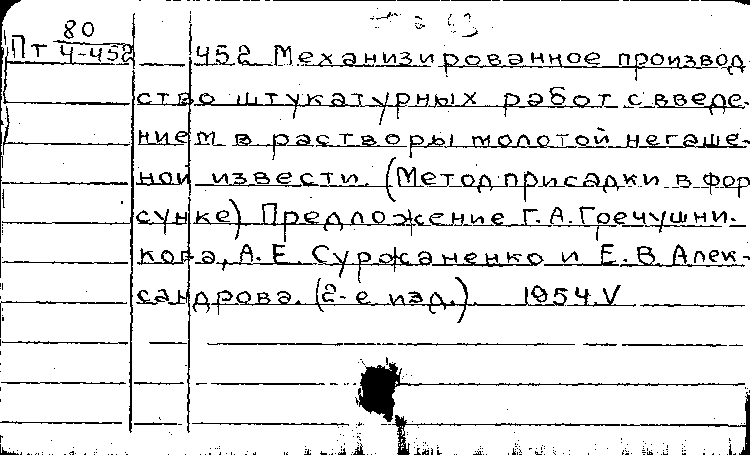 80
Пт 4-452
452 Механизированное производ-
ство штукатурных работ с введе-
нием в растворы молотой негаше-
ной извести. (Метод присадки в фор
сунке) Предложение Г. А. Гречушни-
кова, А. Е. Суржаненко и Е. В. Алек-
сандрова. (2-е изд.). 1954. V